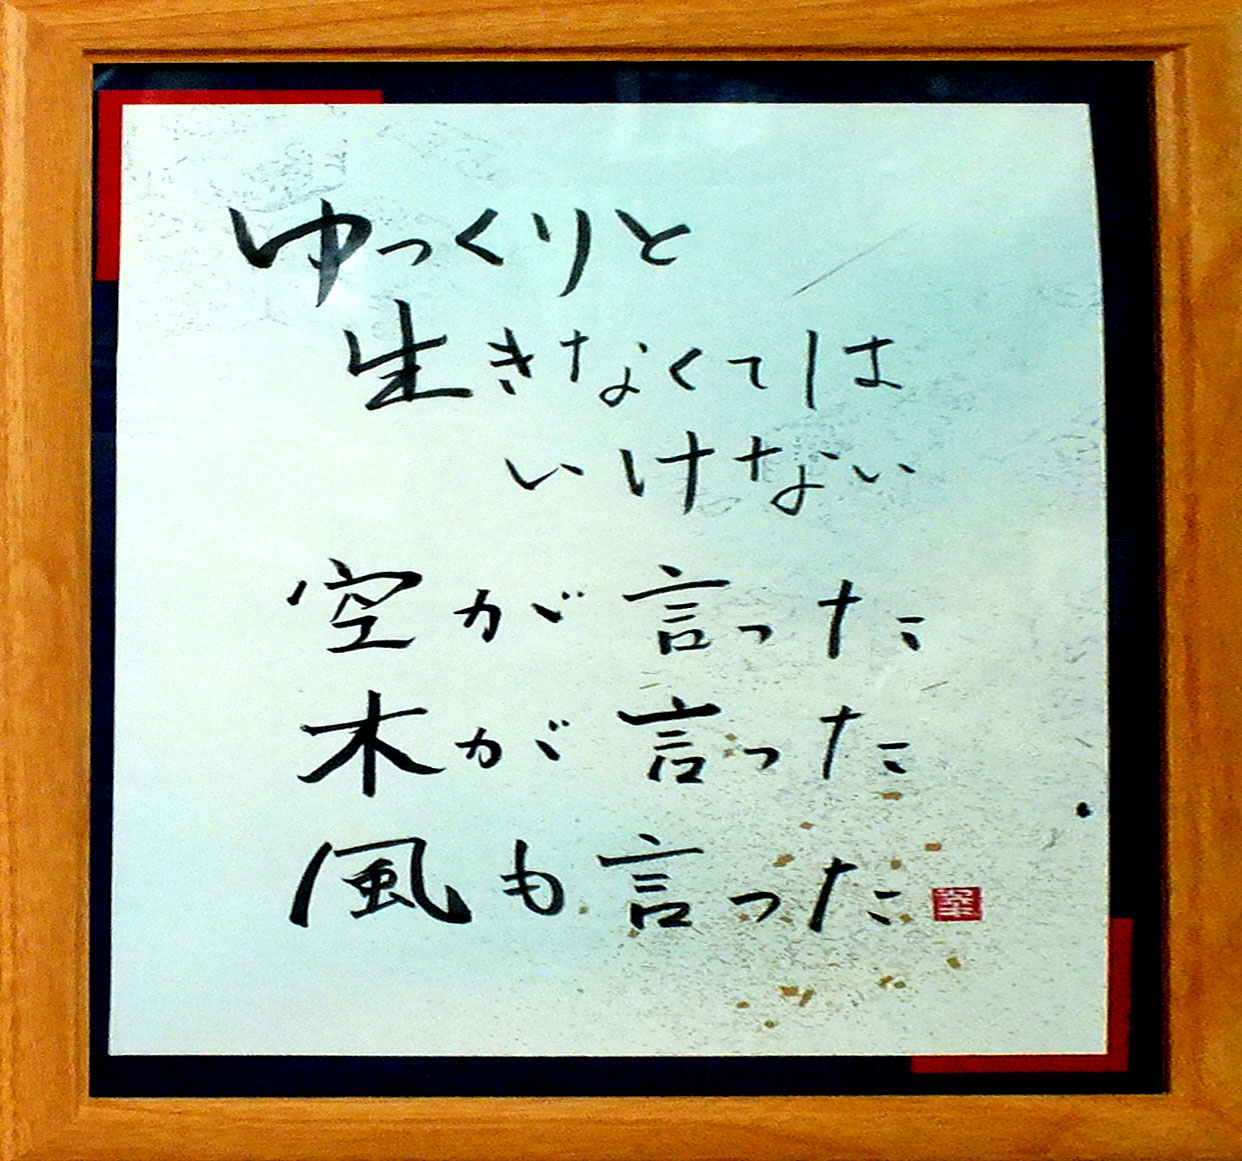 ゆっくりと
生きなくては
いけない
空が言った
木が言った
風も言った